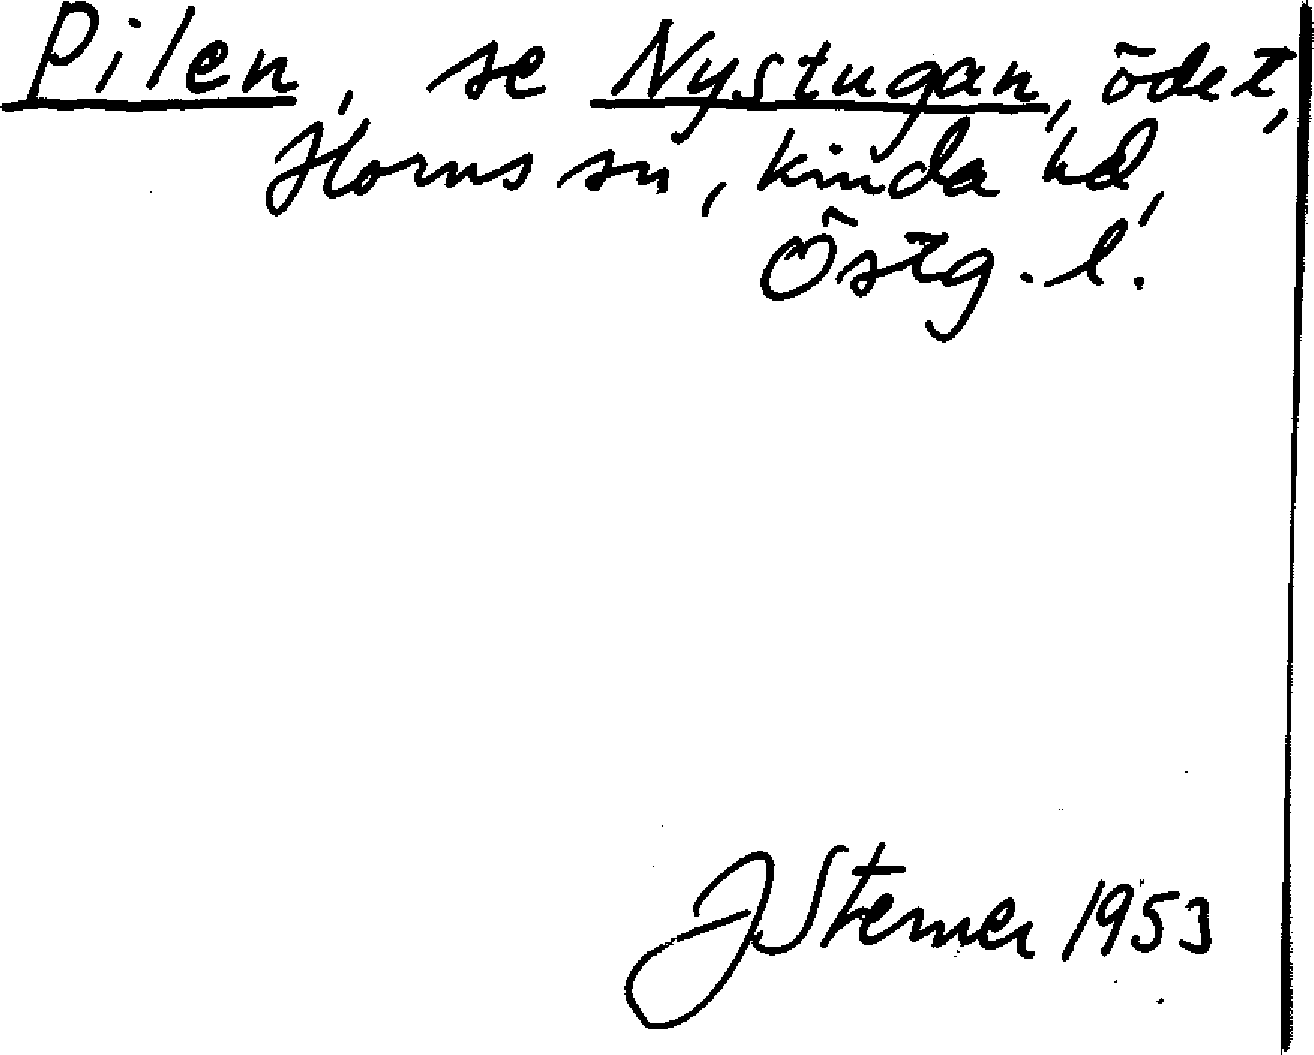 Pilen, se Nystugan, ödet,
Horns sn, Kinda hd,
Östg. l.
J Sterner 1953